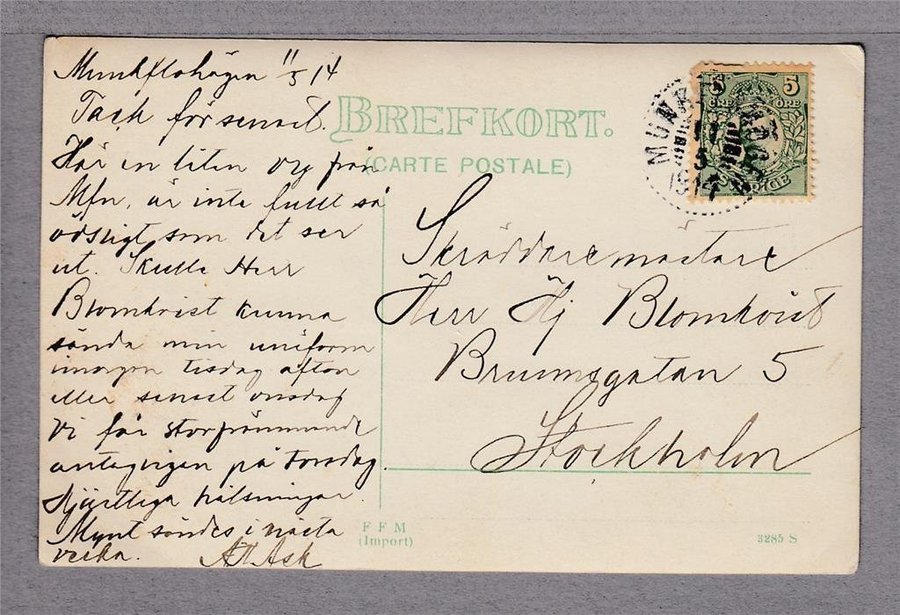 Munkflohögen 11/5 14
Tack för senast.
Här en liten vy från
Mfn, är inte fullt så
ödsligt som det ser
ut. Skulle Herr
Blomkvist kunna
sända min uniform
imorgon tisdag afton
eller senast onsdag
Vi får storfrämmande
antagligen på Torsdag.
Hjärtliga hälsningar.
Mynt sändes i nästa
vecka. Ask
BREFKORT.
(CARTE POSTALE)
5 5
ÖRE ÖRE
SVERIGE
MUNKFLOHÖGEN
11
5
1914
Skräddaremästare
Herr Hj Blomkvist
Brunnsgatan 5
Stockholm
F F M
(Import)
3285 S